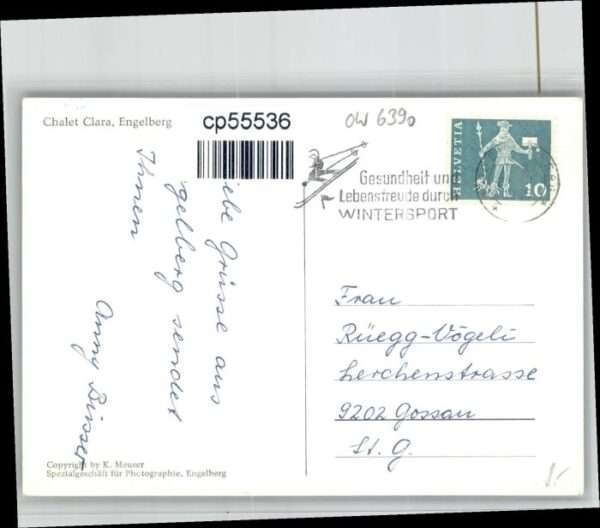 Chalet Clara, Engelberg
cp55536
OW 6390
HELVETIA
10
Gesundheit und
Lebensfreude durch
WINTERSPORT
iebe Grüsse aus
gelberg sendet
Ihnen
Anny
Frau
Rüegg-Vögeli
Lerchenstrasse
9202 Gossau
St. G.
Copyright by K. Meuser
Spezialgeschäft für Photographie, Engelberg
1.-